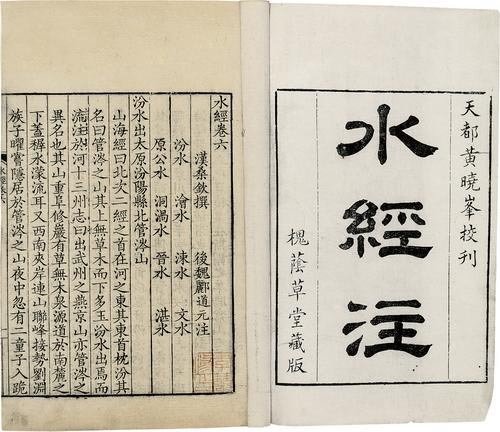 天都黃曉峯校刊
水經注
槐蔭草堂藏版
水經卷六
漢桑欽撰　後魏酈道元注
汾水　澮水　涑水　文水
原公水　洞渦水　晉水　湛水
汾水出太原汾陽縣北管涔山
山海經曰北次二經之首在河之東其東首枕汾其
名曰管涔之山其上無草木而下多玉汾水出焉而
流注於河十三州志曰出武州之燕京山亦管涔之
異名也其山重阜修巖有草無木泉源道於南麓之
下蓋稺水濛流耳又西南夾岸連山聯峰接勢劉淵
族子曜嘗隱居於管涔之山夜中忽有二童子入跪